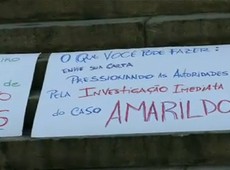 O QUE VOCÊ PODE FAZER:
ENVIE SUA CARTA
PRESSIONANDO AS AUTORIDADES
PELA INVESTIGAÇÃO IMEDIATA
DO CASO AMARILDO
de